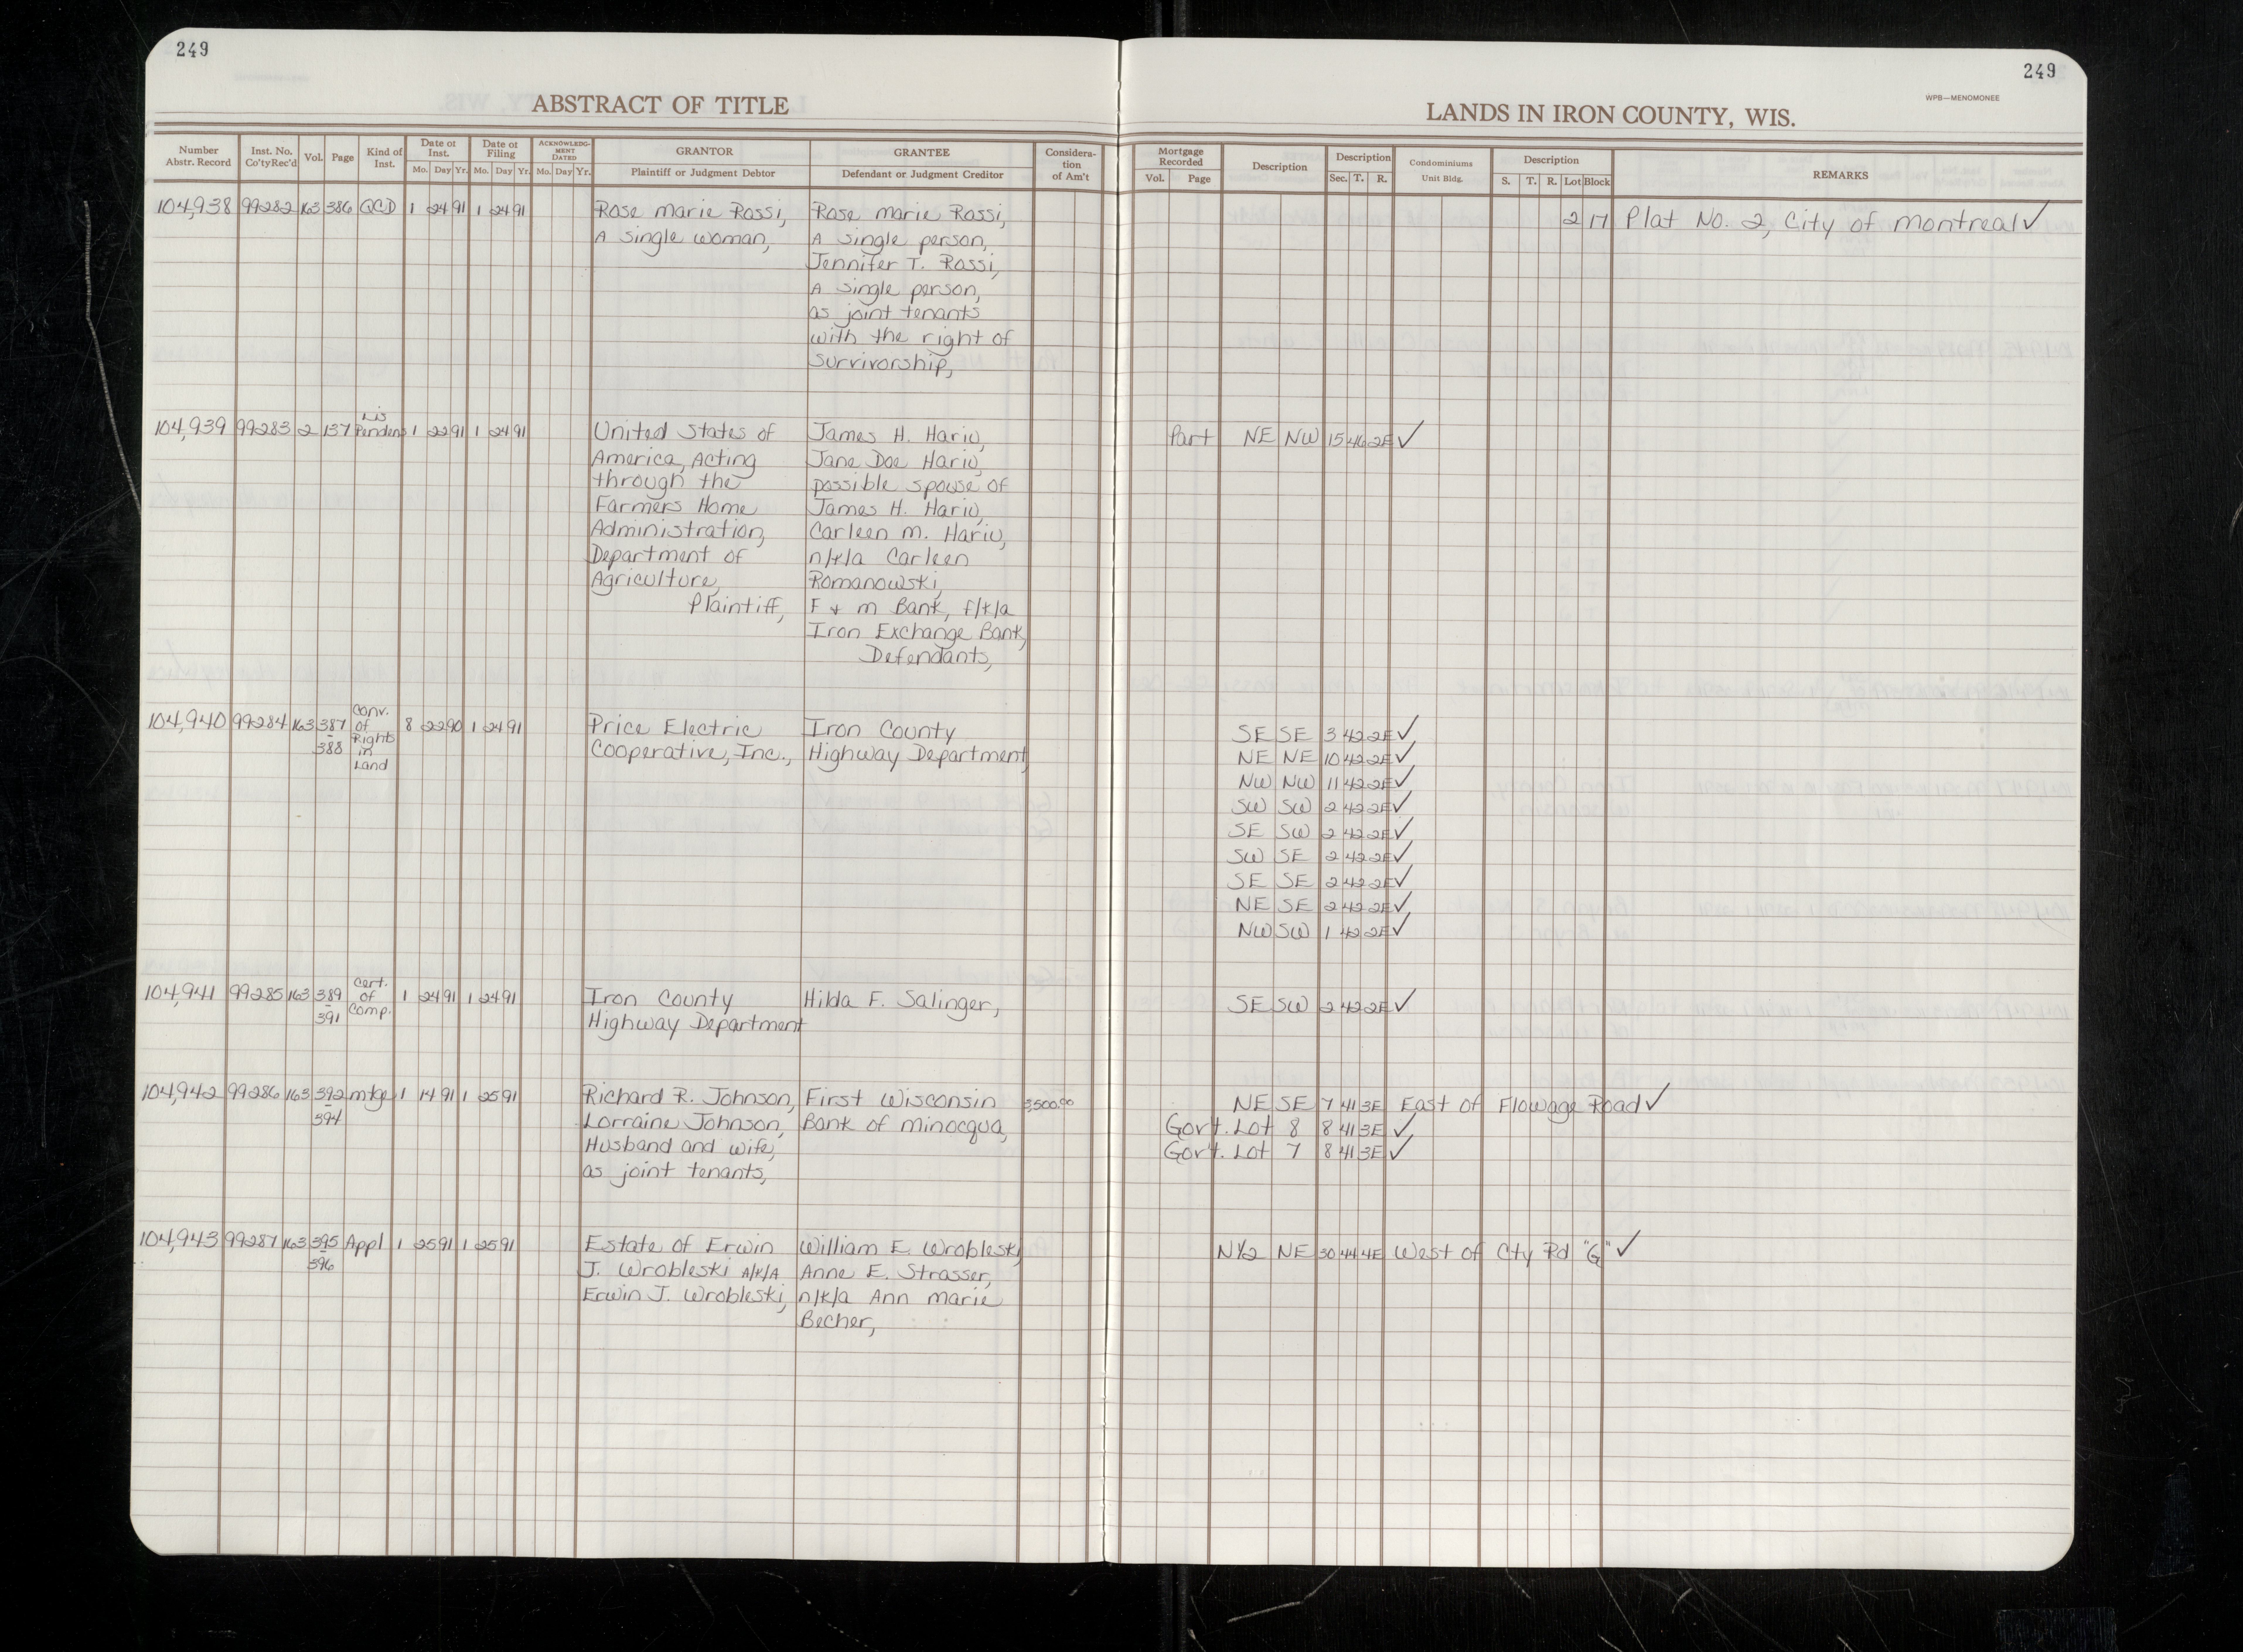 249
ABSTRACT OF TITLE
Number Abstr. Record
Inst. No. Co'tyRec'd
Vol.
Page
Kind of Inst.
Date of Inst.
Mo. Day Yr.
Date of Filing
Mo. Day Yr.
ACKNOWLEDGMENT DATED
Mo. Day Yr.
GRANTOR
Plaintiff or Judgment Debtor
GRANTEE
Defendant or Judgment Creditor
Consideration of Am't
249
WPB—MENOMONEE
LANDS IN IRON COUNTY, WIS.
Mortgage Recorded
Vol. Page
Description
Description
Sec. T. R.
Condominiums
Unit Bldg.
Description
S. T. R. Lot Block
REMARKS
104,938 99282 163 386 QCD 1 24 91 1 24 91
Rose Marie Rossi,
A single woman,
Rose Marie Rossi,
A single person,
Jennifer T. Rossi,
A single person,
as joint tenants
with the right of
Survivorship,
2 17 Plat No. 2, City of Montreal ✓
104,939 99283 2 137 Lis Pendens 1 22 91 1 24 91
United States of
America, Acting
through the
Farmers Home
Administration,
Department of
Agriculture,
Plaintiff,
James H. Hariu,
Jane Doe Hariu,
possible spouse of
James H. Hariu,
Carleen M. Hariu,
n/k/a Carleen
Romanowski,
F & M Bank, f/k/a
Iron Exchange Bank,
Defendants,
Part NE NW 15 46 2E ✓
104,940 99284 163 387-388 Conv. of Rights in Land 8 22 90 1 24 91
Price Electric
Cooperative, Inc.,
Iron County
Highway Department,
SE SE 3 42 2E ✓
NE NE 10 42 2E ✓
NW NW 11 42 2E ✓
SW SW 2 42 2E ✓
SE SW 2 42 2E ✓
SW SE 2 42 2E ✓
SE SE 2 42 2E ✓
NE SE 2 42 2E ✓
NW SW 1 42 2E ✓
104,941 99285 163 389-391 Cert. of Comp. 1 24 91 1 24 91
Iron County
Highway Department
Hilda F. Salinger,
SE SW 2 42 2E ✓
104,942 99286 163 392-394 mtge 1 14 91 1 25 91
Richard R. Johnson,
Lorraine Johnson,
Husband and wife,
as joint tenants,
First Wisconsin
Bank of Minocqua,
NE SE 7 41 3E East of Flowage Road ✓
Gov't. Lot 8 8 41 3E ✓
Gov't. Lot 7 8 41 3E ✓
104,943 99287 163 395-396 Appl 1 25 91 1 25 91
Estate of Erwin
J. Wrobleski A/K/A
Erwin J. Wrobleski,
William E. Wrobleski,
Anne E. Strasser,
n/k/a Ann Marie
Becher,
N½ NE 30 44 4E West of Cty Rd "G" ✓